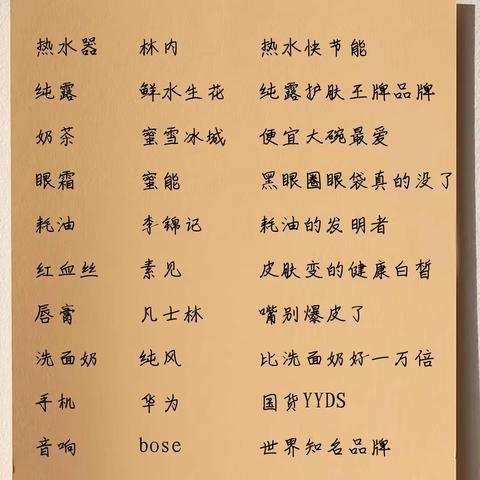 热水器 林内 热水快节能
纯露 鲜水生花 纯露护肤王牌品牌
奶茶 蜜雪冰城 便宜大碗最爱
眼霜 蜜能 黑眼圈眼袋真的没了
耗油 李锦记 耗油的发明者
红血丝 素见 皮肤变的健康白皙
唇膏 凡士林 嘴别爆皮了
洗面奶 纯风 比洗面奶好一万倍
手机 华为 国货YYDS
音响 bose 世界知名品牌